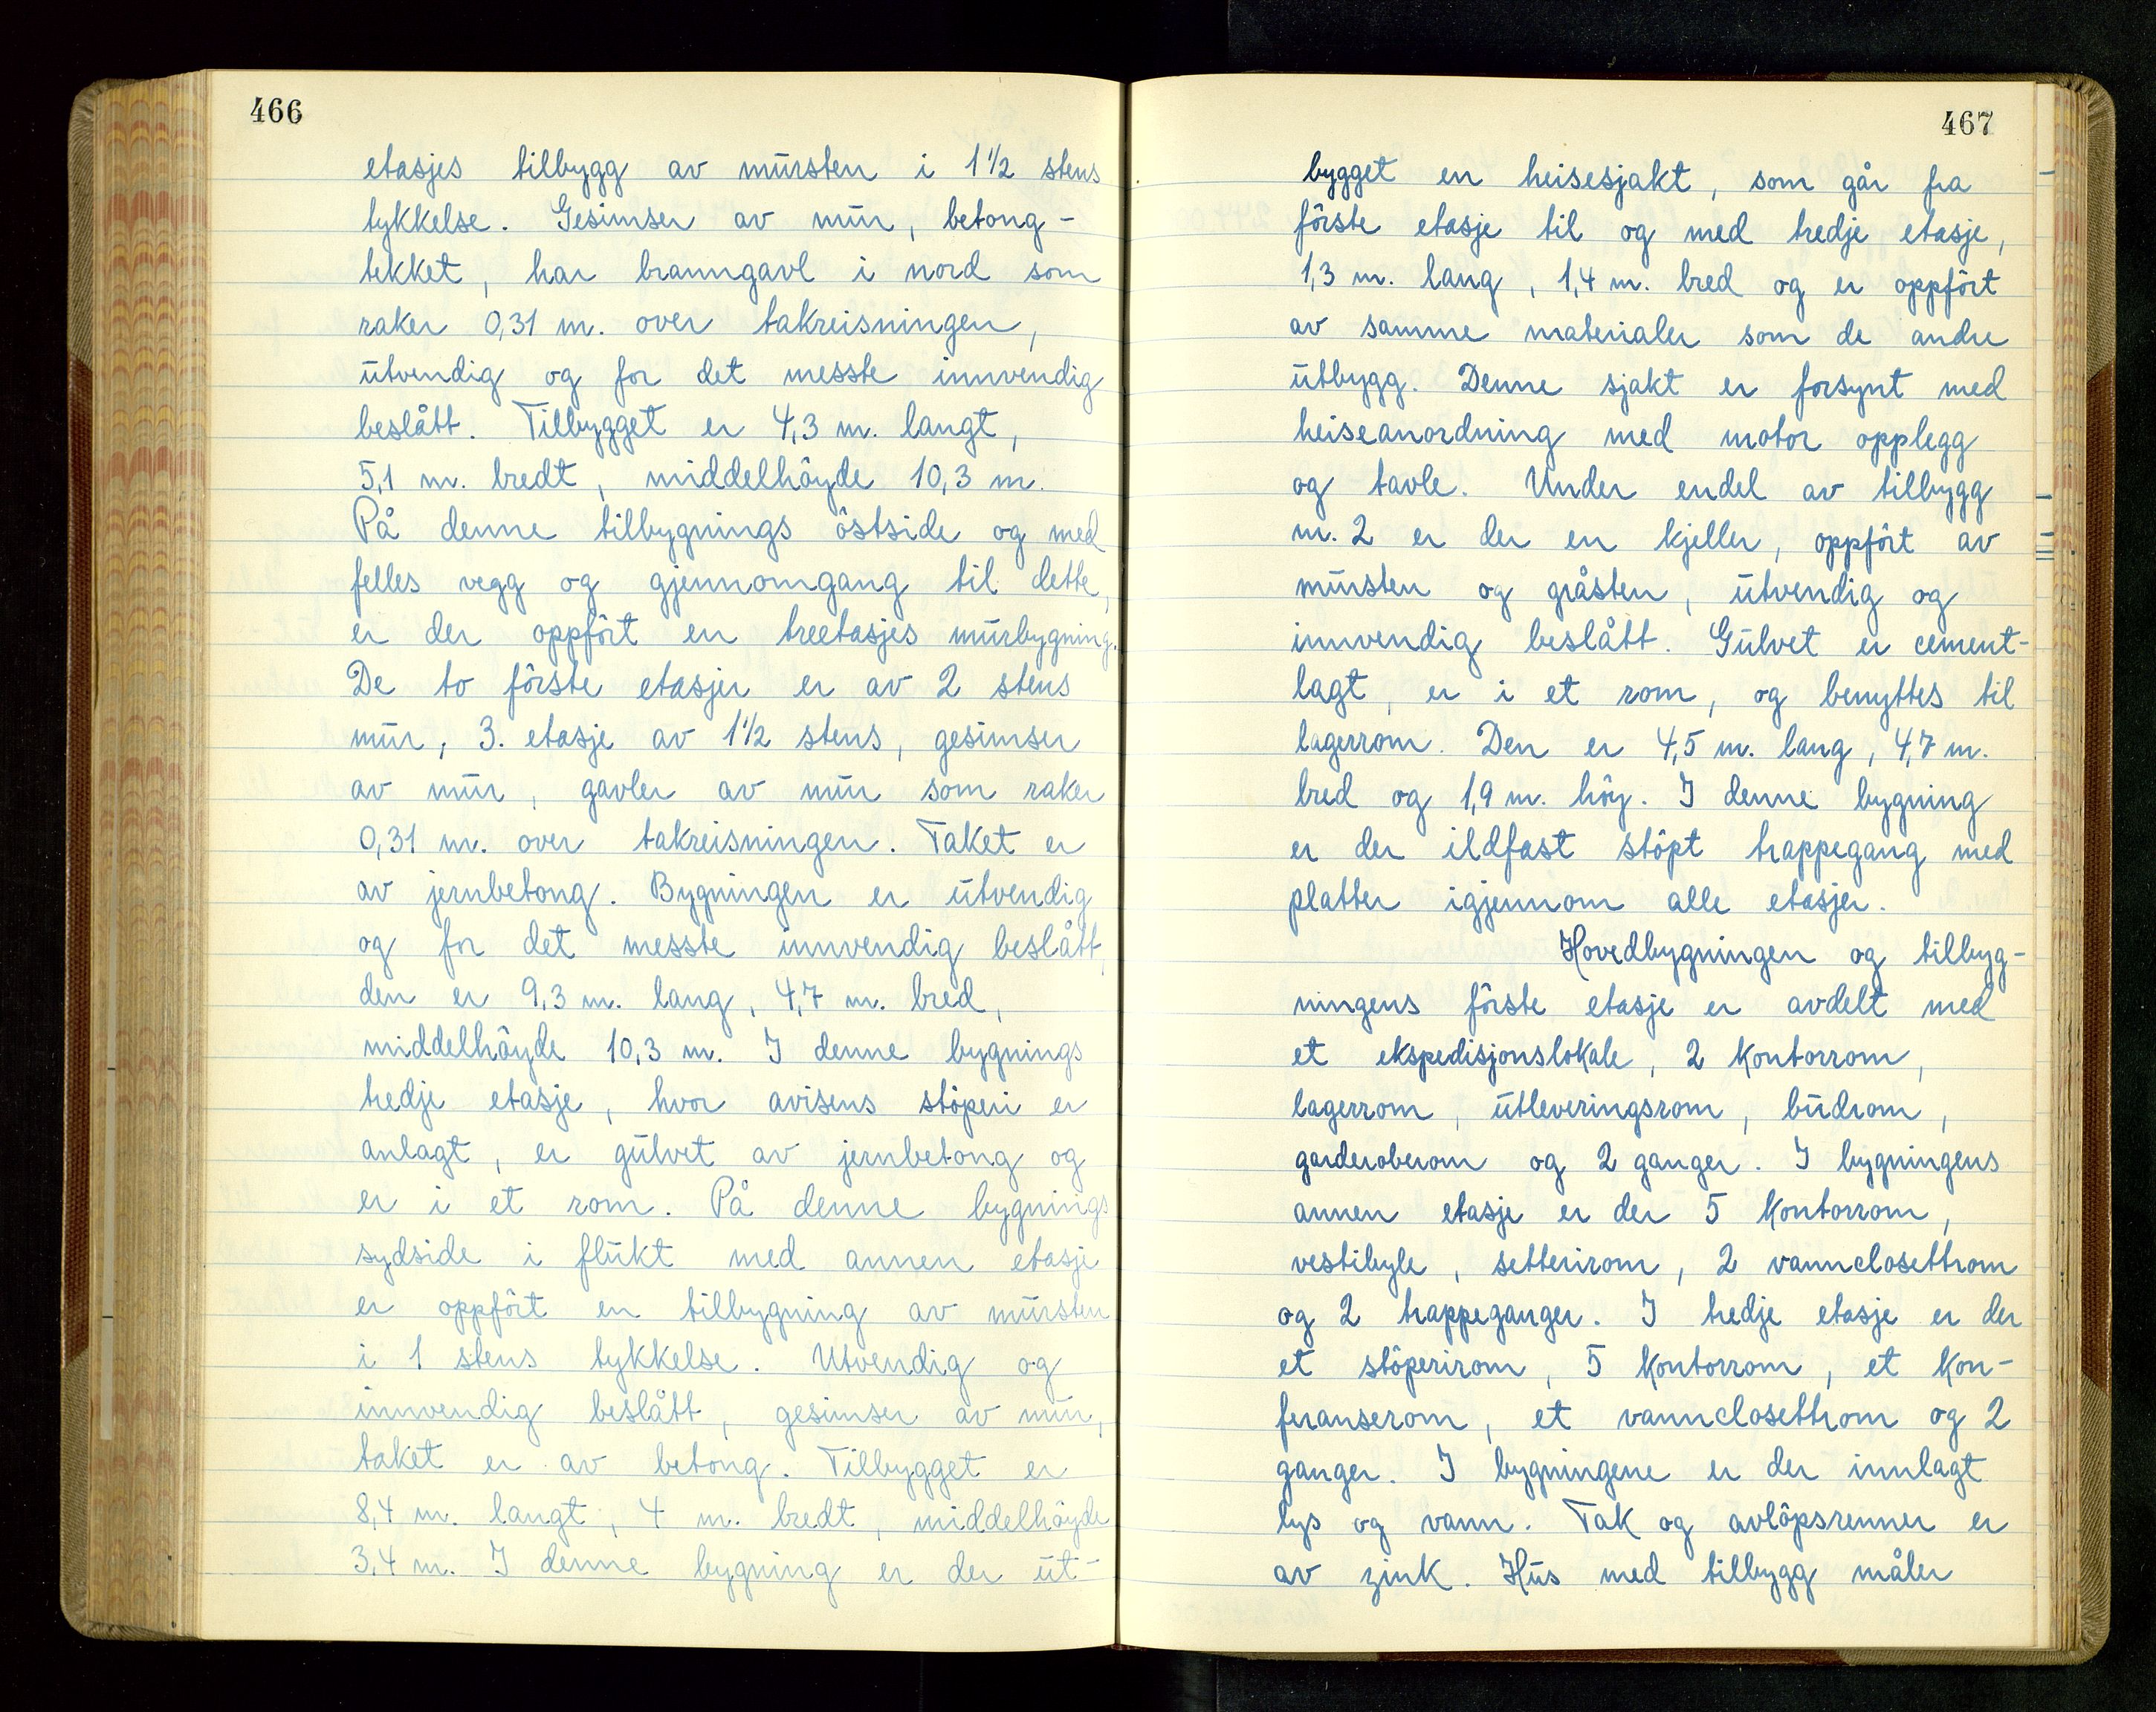 466
etasjes tilbygg av mursten i 1 1/2 stens
tykkelse. Gesimser av mur, betong-
tekket, har branngavl i nord som
raker 0,31 m. over takreisningen,
utvendig og for det messte innvendig
beslått. Tilbygget er 4,3 m. langt,
5,1 m. bredt, middelhöyde 10,3 m.
På denne tilbygnings östside og med
felles vegg og gjennomgang til dette,
er der oppfört en treetasjes murbygning.
De to förste etasjer er av 2 stens
mur, 3. etasje av 1 1/2 stens, gesimser
av mur, gavler av mur som raker
0,31 m. over takreisningen. Taket er
av jernbetong. Bygningen er utvendig
og for det messte innvendig beslått,
den er 9,3 m. lang, 4,7 m. bred,
middelhöyde 10,3 m. I denne bygnings
tredje etasje, hvor avisens stöperi er
anlagt, er gulvet av jernbetong og
er i et rom. På denne bygnings
sydside i flukt med annen etasje
er oppfört en tilbygning av mursten
i 1 stens tykkelse. Utvendig og
innvendig beslått, gesimser av mur,
taket er av betong. Tilbygget er
8,4 m. langt, 4 m. bredt, middelhöyde
3,4 m. I denne bygning er der ut-
467
bygget en heisesjakt, som går fra
förste etasje til og med tredje etasje,
1,3 m. lang, 1,4 m. bred og er oppfört
av samme materialer som de andre
utbygg. Denne sjakt er forsynt med
heiseanordning med motor opplegg
og tavle. Under endel av tilbygg
m. 2 er der en kjeller, oppfört av
mursten og gråsten, utvendig og
innvendig beslått. Gulvet er cement-
lagt, er i et rom, og benyttes til
lagerrom. Den er 4,5 m. lang, 4,7 m.
bred og 1,9 m. höy. I denne bygning
er der ildfast stöpt trappegang med
platter igjennom alle etasjer.
Hovedbygningen og tilbyg-
ningens förste etasje er avdelt med
et ekspedisjonslokale, 2 kontorrom,
lagerrom, utleveringsrom, budrom,
garderoberom og 2 ganger. I bygningens
annen etasje er der 5 kontorrom,
vestibyle, setterirom, 2 vannclosettrom
og 2 trappeganger. I tredje etasje er der
et stöperirom, 5 kontorrom, et kon-
feranserom, et vannclosettrom og 2
ganger. I bygningene er der innlagt
lys og vann. Tak og avlöpsrenner er
av zink. Hus med tilbygg måler